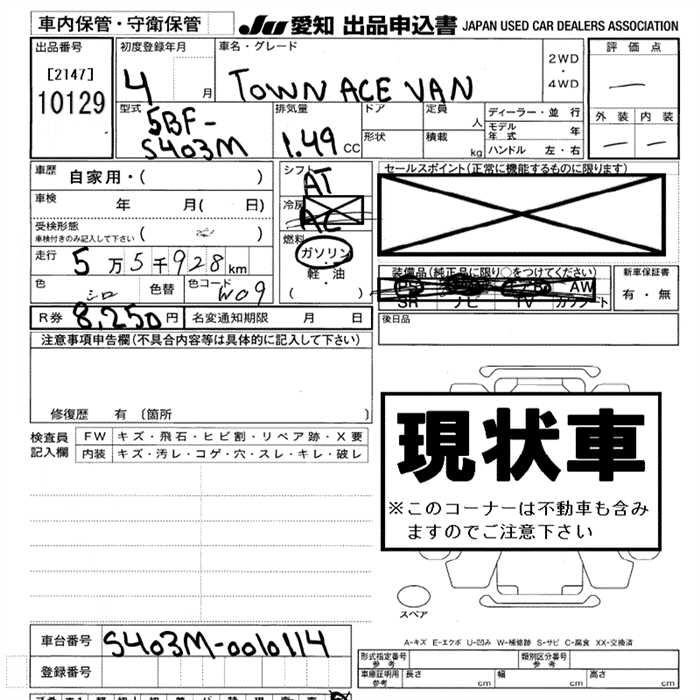 車内保管・守衛保管
JU 愛知 出品申込書 JAPAN USED CAR DEALERS ASSOCIATION
出品番号
[2147]
10129
初度登録年月
4 月
車名・グレード
TOWN ACE VAN
2WD
・
4WD
評価点
—
外装 内装
— —
型式
5BF-
S403M
排気量
1.49 CC
ドア
形状
定員
人
積載
kg
ディーラー・並行
モデル
年式 年
ハンドル 左・右
車歴
自家用・( )
車検
年 月( 日)
受検形態
車検付きのみ記入して下さい ( )
走行
5万5千928km
色 シロ 色替 色コード W09
シフト
AT
冷房
AC
燃料
ガソリン
・
軽・油
( )
セールスポイント(正常に機能するものに限ります)
装備品(純正品に限り○をつけてください)
AW
SR ナビ TV カワシート
新車保証書
有・無
R券 8,250円 名変通知期限 月 日
後日品
注意事項申告欄(不具合内容等は具体的に記入して下さい)
修復歴 有 〔箇所 〕
検査員
記入欄
FW キズ・飛石・ヒビ割・リペア跡・X要
内装 キズ・汚レ・コゲ・穴・スレ・キレ・破レ
現状車
※このコーナーは不動車も含み
ますのでご注意下さい
スペア
A-キズ E-エクボ U-凹み W-補修跡 S-サビ C-腐食 XX-交換済
車台番号 S403M-0010114
登録番号
形式指定番号
参考
類別区分番号
参考
車庫証明用
参考
長さ cm 幅 cm 高さ cm